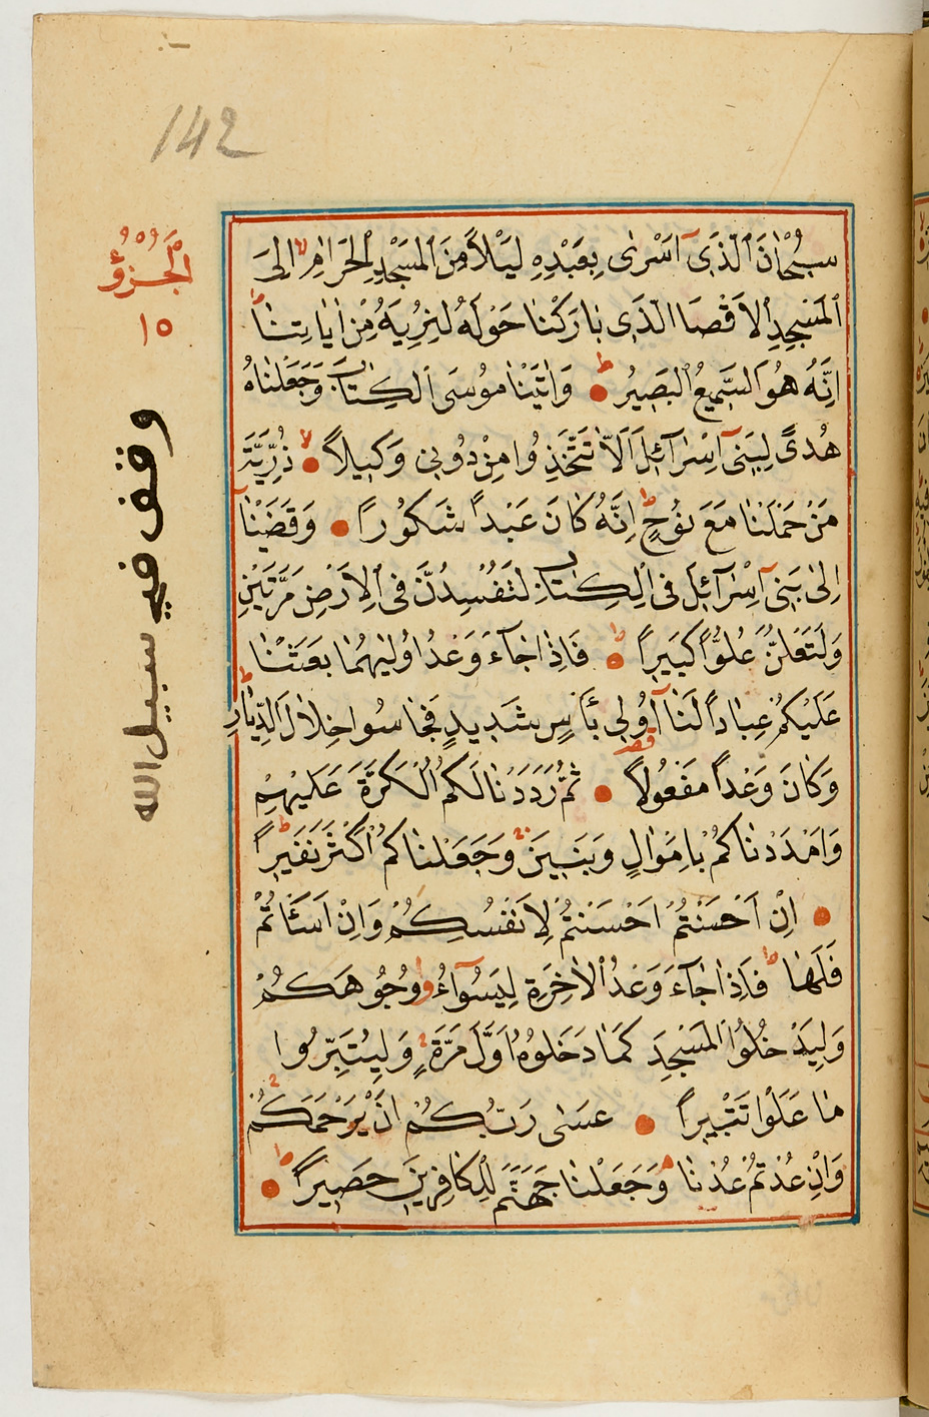 142
الجزؤ
١٥
وقف في سبيل الله
سُبْحَانَ الَّذِى اَسْرٰى بِعَبْدِهِ لَيْلاً مِنَ الْمَسْجِدِ الْحَرَامِ اِلَى
الْمَسْجِدِ الْاَقْصَا الَّذِى بَارَكْنَا حَوْلَهُ لِنُرِيَهُ مِنْ اٰيَاتِنَا ط
اِنَّهُ هُوَ السَّمِيعُ الْبَصِيرُ ط وَاٰتَيْنَا مُوسَى الْكِتَابَ وَجَعَلْنَاهُ
هُدًى لِبَنِىٓ اِسْرَآئِلَ اَلَّا تَتَّخِذُوا مِنْ دُونِى وَكِيلاً لا ذُرِّيَّةَ
مَنْ حَمَلْنَا مَعَ نُوحٍ ط اِنَّهُ كَانَ عَبْداً شَكُوراً وَقَضَيْنَآ
اِلٰى بَنِىٓ اِسْرَآئِلَ فِى الْكِتَابِ لَتُفْسِدُنَّ فِى الْاَرْضِ مَرَّتَيْنِ
وَلَتَعْلُنَّ عُلُوًّا كَبِيراً ط فَاِذَا جَآءَ وَعْدُ اُولٰيهُمَا بَعَثْنَا
عَلَيْكُمْ عِبَاداً لَنَآ اُولِى بَأْسٍ شَدِيدٍ فَجَاسُوا خِلَالَ الدِّيَارِ ط
وَكَانَ وَعْداً مَفْعُولاً ثُمَّ رَدَدْنَا لَكُمُ الْكَرَّةَ عَلَيْهِمْ
وَاَمْدَدْنَاكُمْ بِاَمْوَالٍ وَبَنِينَ وَجَعَلْنَاكُمْ اَكْثَرَ نَفِيراً ط
اِنْ اَحْسَنْتُمْ اَحْسَنْتُمْ لِاَنْفُسِكُمْ وَاِنْ اَسَأْتُمْ
فَلَهَا ط فَاِذَا جَآءَ وَعْدُ الْاٰخِرَةِ لِيَسُوٓءُوا وُجُوهَكُمْ
وَلِيَدْخُلُوا الْمَسْجِدَ كَمَا دَخَلُوهُ اَوَّلَ مَرَّةٍ وَلِيُتَبِّرُوا
مَا عَلَوْا تَتْبِيراً عَسٰى رَبُّكُمْ اَنْ يَرْحَمَكُمْ
وَاِنْ عُدْتُمْ عُدْنَا وَجَعَلْنَا جَهَنَّمَ لِلْكَافِرِينَ حَصِيراً ط